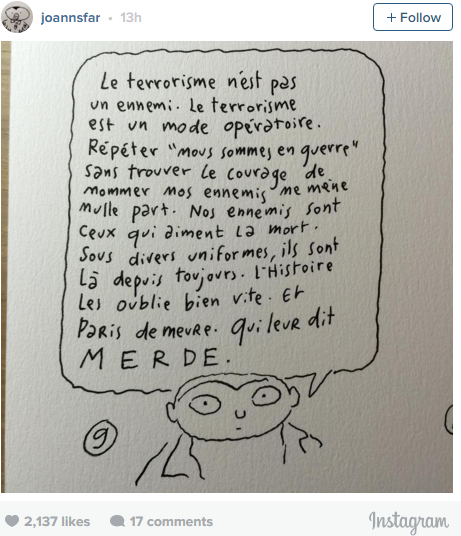 joannsfar • 13h
+ Follow
Le terrorisme n'est pas
un ennemi. Le terrorisme
est un mode opératoire.
Répéter "nous sommes en guerre"
sans trouver le courage de
nommer nos ennemis ne mène
nulle part. Nos ennemis sont
ceux qui aiment la mort.
Sous divers uniformes, ils sont
là depuis toujours. L'Histoire
les oublie bien vite. Et
Paris demeure. Qui leur dit
MERDE.
9
2,137 likes 17 comments Instagram